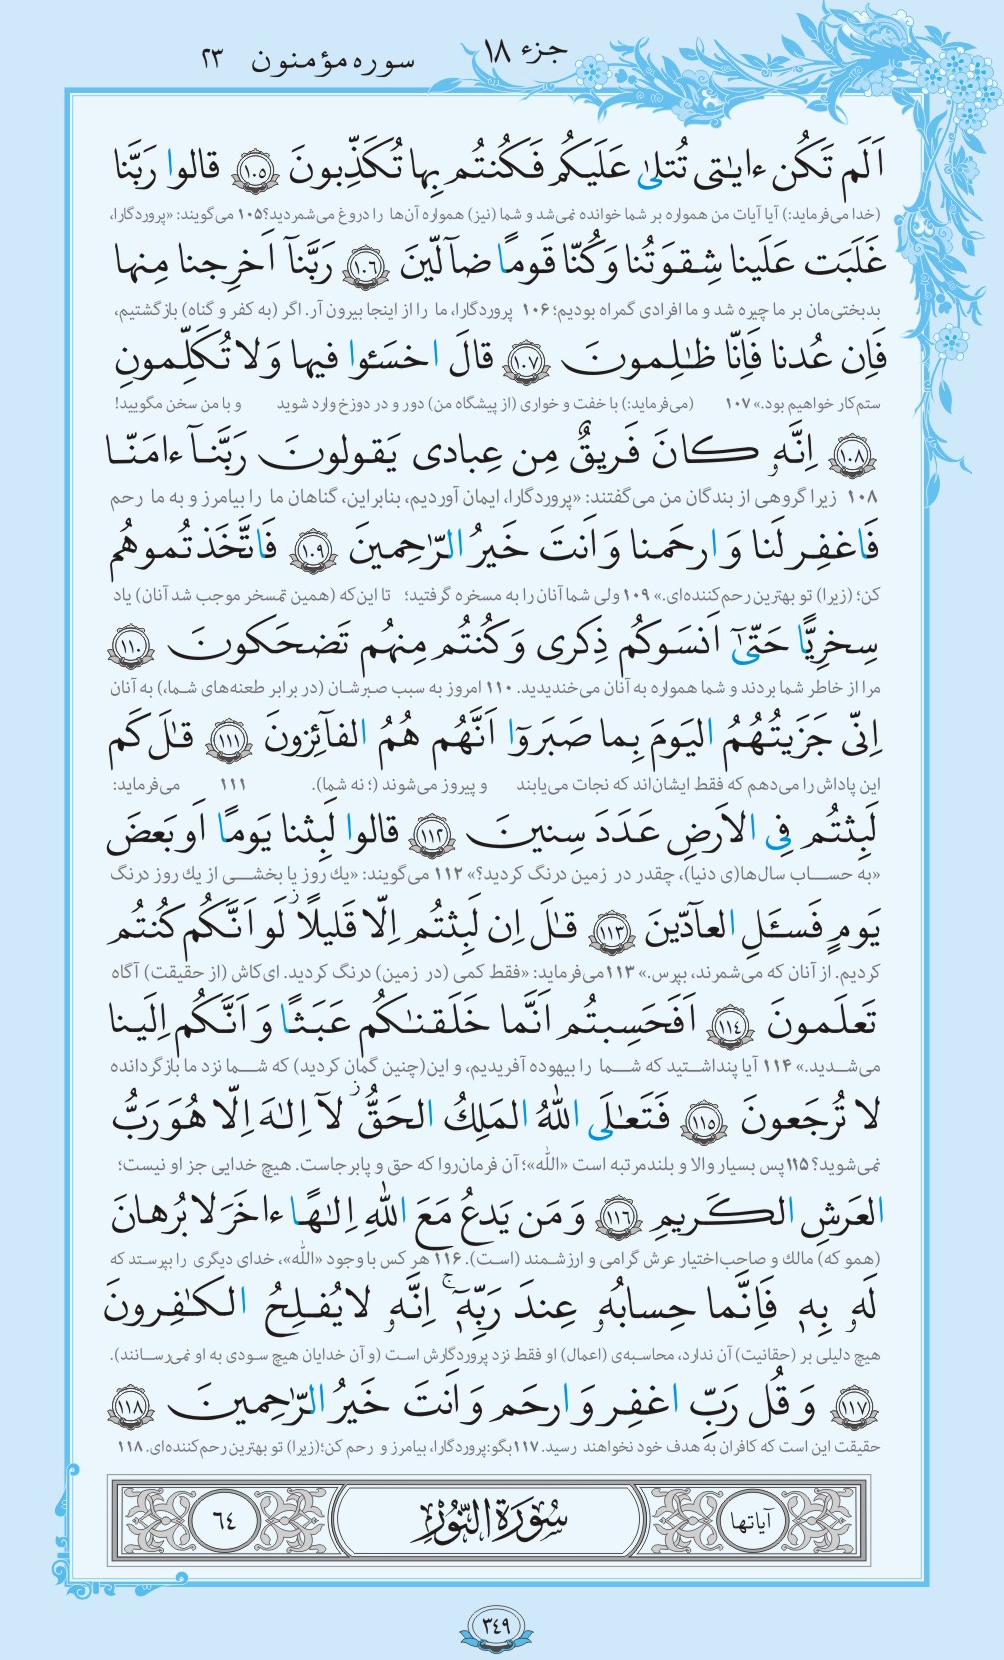 جزء ۱۸
سوره مؤمنون ۲۳
اَلَم تَكُن ءايـٰتى تُتلىٰ عَلَيكُم فَكُنتُم بِها تُكَذِّبونَ ١٠٥ قالوا رَبَّنا
(خدا می‌فرماید:) آیا آیات من همواره بر شما خوانده نمی‌شد و شما (نیز) همواره آن‌ها را دروغ می‌شمردید؟ ۱۰۵ می‌گویند: «پروردگارا،
غَلَبَت عَلَينا شِقوَتُنا وَ كُنّا قَومًا ضآلّينَ ١٠٦ رَبَّنآ اَخرِجنا مِنها
بدبختی‌مان بر ما چیره شد و ما افرادی گمراه بودیم؛ ۱۰۶ پروردگارا، ما را از اینجا بیرون آر. اگر (به کفر و گناه) بازگشتیم،
فَاِن عُدنا فَاِنّا ظـٰلِمونَ ١٠٧ قالَ اخسَـٔوا فيها وَ لا تُكَلِّمونِ
ستم‌کار خواهیم بود.» ۱۰۷ (می‌فرماید:) با خفت و خواری (از پیشگاه من) دور و در دوزخ وارد شوید و با من سخن مگویید!
١٠٨ اِنَّهٗ كانَ فَريقٌ مِن عِبادى يَقولونَ رَبَّنآ ءامَنّا
۱۰۸ زیرا گروهی از بندگان من می‌گفتند: «پروردگارا، ایمان آوردیم، بنابراین، گناهان ما را بیامرز و به ما رحم
فَاغفِر لَنا وَ ارحَمنا وَ اَنتَ خَيرُ الرّٰحِمينَ ١٠٩ فَاتَّخَذتُموهُم
کن؛ (زیرا) تو بهترین رحم‌کننده‌ای.» ۱۰۹ ولی شما آنان را به مسخره گرفتید؛ تا این‌که (همین تمسخر موجب شد آنان) یاد
سِخرِيًّا حَتّىٰٓ اَنسَوكُم ذِكرى وَ كُنتُم مِنهُم تَضحَكونَ ١١٠
مرا از خاطر شما بردند و شما همواره به آنان می‌خندیدید. ۱۱۰ امروز به سبب صبرشان (در برابر طعنه‌های شما،) به آنان
اِنّى جَزَيتُهُمُ اليَومَ بِما صَبَروٓا اَنَّهُم هُمُ الفآئِزونَ ١١١ قـٰلَ كَم
این پاداش را می‌دهم که فقط ایشان‌اند که نجات می‌یابند و پیروز می‌شوند (؛ نه شما). ۱۱۱ می‌فرماید:
لَبِثتُم فِى الاَرضِ عَدَدَ سِنينَ ١١٢ قالوا لَبِثنا يَومًا اَو بَعضَ
«به حساب سال‌ها(ی دنیا)، چقدر در زمین درنگ کردید؟» ۱۱۲ می‌گویند: «یك روز یا بخشی از یك روز درنگ
يَومٍ فَسـَٔلِ العآدّينَ ١١٣ قـٰلَ اِن لَبِثتُم اِلّا قَليلًا ز لَو اَنَّكُم كُنتُم
کردیم. از آنان که می‌شمرند، بپرس.» ۱۱۳ می‌فرماید: «فقط کمی (در زمین) درنگ کردید. ای‌کاش (از حقیقت) آگاه
تَعلَمونَ ١١٤ اَفَحَسِبتُم اَنَّما خَلَقنـٰكُم عَبَثًا وَ اَنَّكُم اِلَينا
می‌شدید.» ۱۱۴ آیا پنداشتید که شما را بیهوده آفریدیم، و این(چنین گمان کردید) که شما نزد ما بازگردانده
لا تُرجَعونَ ١١٥ فَتَعـٰلَى اللّٰهُ المَلِكُ الحَقُّ ز لآ اِلـٰهَ اِلّا هُوَ رَبُّ
نمی‌شوید؟ ۱۱۵ پس بسیار والا و بلندمرتبه است «اللّٰه»؛ آن فرمان‌روا که حق و پابرجاست. هیچ خدایی جز او نیست؛
العَرشِ الكَريمِ ١١٦ وَ مَن يَدعُ مَعَ اللّٰهِ اِلـٰهًا ءاخَرَ لا بُرهانَ
(همو که) مالك و صاحب‌اختیار عرش گرامی و ارزشمند (است). ۱۱۶ هر کس با وجود «اللّٰه»، خدای دیگری را بپرستد که
لَهٗ بِهٖ فَاِنَّما حِسابُهٗ عِندَ رَبِّهٖٓ ۚ اِنَّهٗ لا يُفلِحُ الكـٰفِرونَ
هیچ دلیلی بر (حقانیت) آن ندارد، محاسبه‌ی (اعمال) او فقط نزد پروردگارش است (و آن خدایان هیچ سودی به او نمی‌رسانند).
١١٧ وَ قُل رَبِّ اغفِر وَ ارحَم وَ اَنتَ خَيرُ الرّٰحِمينَ ١١٨
حقیقت این است که کافران به هدف خود نخواهند رسید. ۱۱۷ بگو: پروردگارا، بیامرز و رحم کن؛(زیرا) تو بهترین رحم‌کننده‌ای. ۱۱۸
آیاتها سُورَةُ النُّورِ ٦٤
٣٤٩